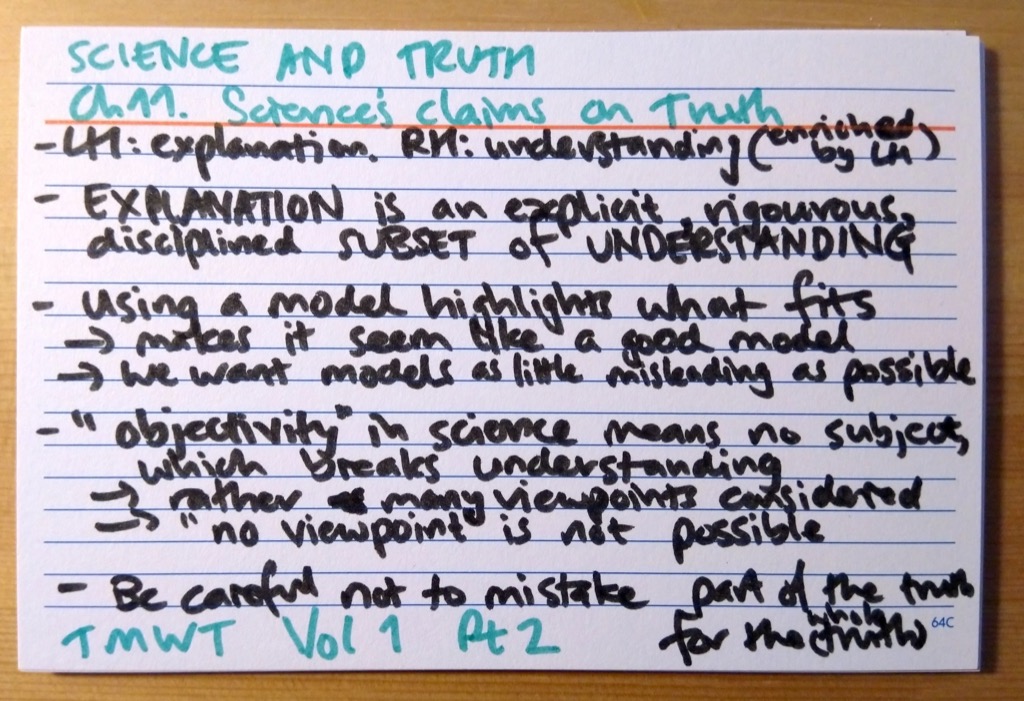 SCIENCE AND TRUTH
Ch 11. Science's claims on Truth
- LH: explanation. RH: understanding (enriched by LH)
- EXPLANATION is an explicit, rigourous,
disciplined SUBSET of UNDERSTANDING
- Using a model highlights what fits
→ makes it seem like a good model
→ We want models as little misleading as possible
- "objectivity" in science means no subject,
which breaks understanding
→ rather many viewpoints considered
→ "no viewpoint" is not possible
- Be careful not to mistake part of the truth
for the (whole truth)
TMWT Vol 1 Pt 2
64C